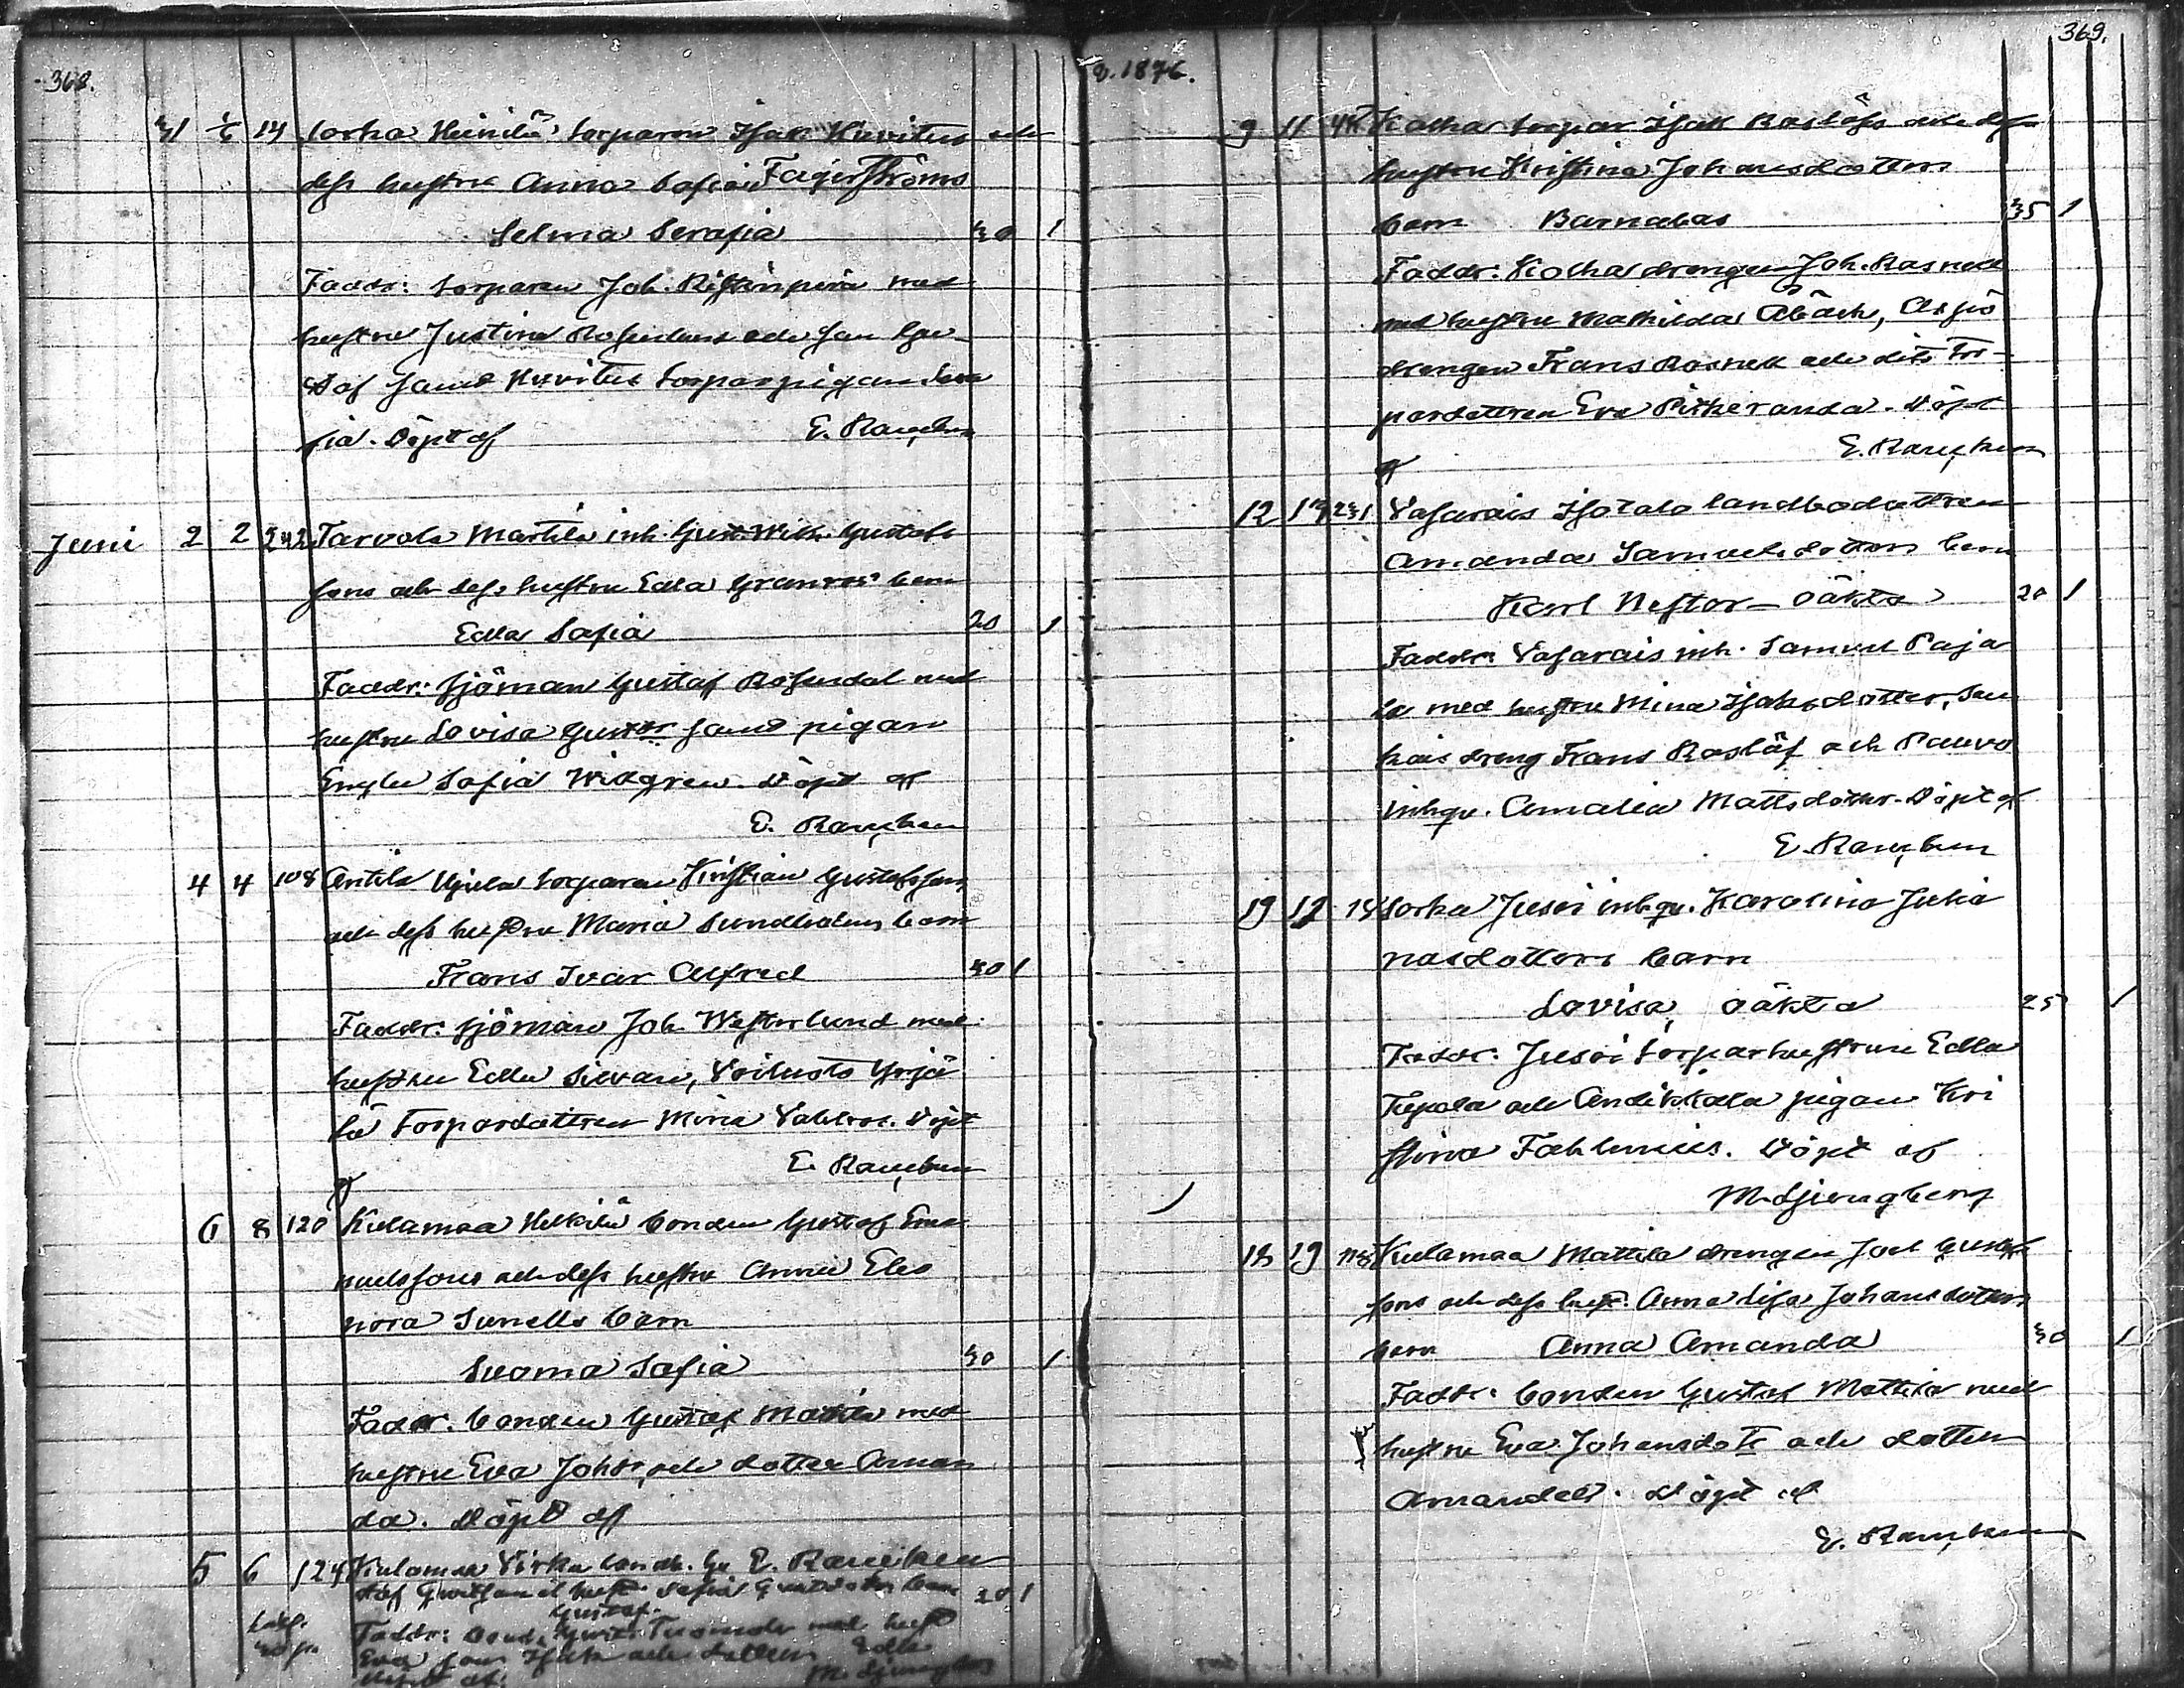 368.
31 1/6 14 Sorka Heinilä torparen Isak Kuvitus och
dess hustru Anna Sofia Fagerströms
Selma Serafia 30 1
Faddr: torparen Joh. Ristinperä med
hustru Justina Rosendens och
af samt Kuvitus torparpigan
fia. Döpt af E. Raucken
Juni 2 2 242 Tarvola Martila inh. Gust. Wilh. Gustafs
sons och dess hustru Edla Granroos barn
Edla Sofia 20 1
Faddr: sjöman Gustaf Rosendal med
hustru Lovisa Gustdr samt pigan
Sofia Widgren. Döpt af
E. Raucken
4 4 108 Antila Ujula torparen Kristian Gustafssons
och dess hustru Maria Sundholms barn
Frans Ivar Alfred 30 1
Faddr: sjöman Joh. Westerlund med
hustru Edla Silvan, Voiluoto Yrjä
lä torpardottren Mina Vahlroos. Döpt
af E. Raucken
6 8 120 Kulamaa Heikilä bonden Gustaf Ema
nuelssons och dess hustru Anna Eleo
nora Sunells barn
Suoma Sofia 30 1
Faddr. bonden Gustaf Mattila med
hustru Eva Johdr, och dotter Aman
da. Döpt af
E. Raucken
5 6 124 Kulamaa Virka bond. Gu
staf Gustfsons o hust. Sofia Gustdotter barn 20 1
Gustaf.
Faddr: bond. Gust. Tuomola med hust
Eva samt Isak och dottern Edla
Döpt af. M. Ljungberg
å. 1876.
369.
9 11 44 Kotka torpar Isak Roslöfs och dess
hustru Kristina Johansdotters
barn Barnabas 35 1
Faddr: Kotka drengen Joh. Rasnek
med hustru Mathilda Åbäck, Assjö
drengen Frans Rasnek och dito tor-
pardottren Eva Pitkeranda. Döpt
af E. Raucken
12 13 231 Vasarais Isotalo landbodottren
Amanda Samuelsdotters barn
Karl Nestor - oäkta 20 1
Faddr: Vasarais inh. Samuel Paja
la med hustru Mina Isaksdotter, Sun
kais dreng Frans Roslöf och Pauvo
inhqv. Amalia Mattsdotter. Döpt af
E. Raucken
19 19 14 Sorka Jusoi inhqv. Karolina Julia
nasdotters barn
Lovisa, oäkta 25 1
Faddr: Jusoi torparhustrun Edla
Tupola och Andikkala pigan Kri
stina Fahlenius. Döpt af
M. Ljungberg
18 19 118 Kulamaa Mattila drengen Joel Gustaf
sons och dess hust. Anna Lisa Johansdotters
barn Anna Amanda 30 1
Faddr: bonden Gustaf Mattila med
hustru Eva Johansdotr och dottern
Amanda. Döpt af
E. Raucken